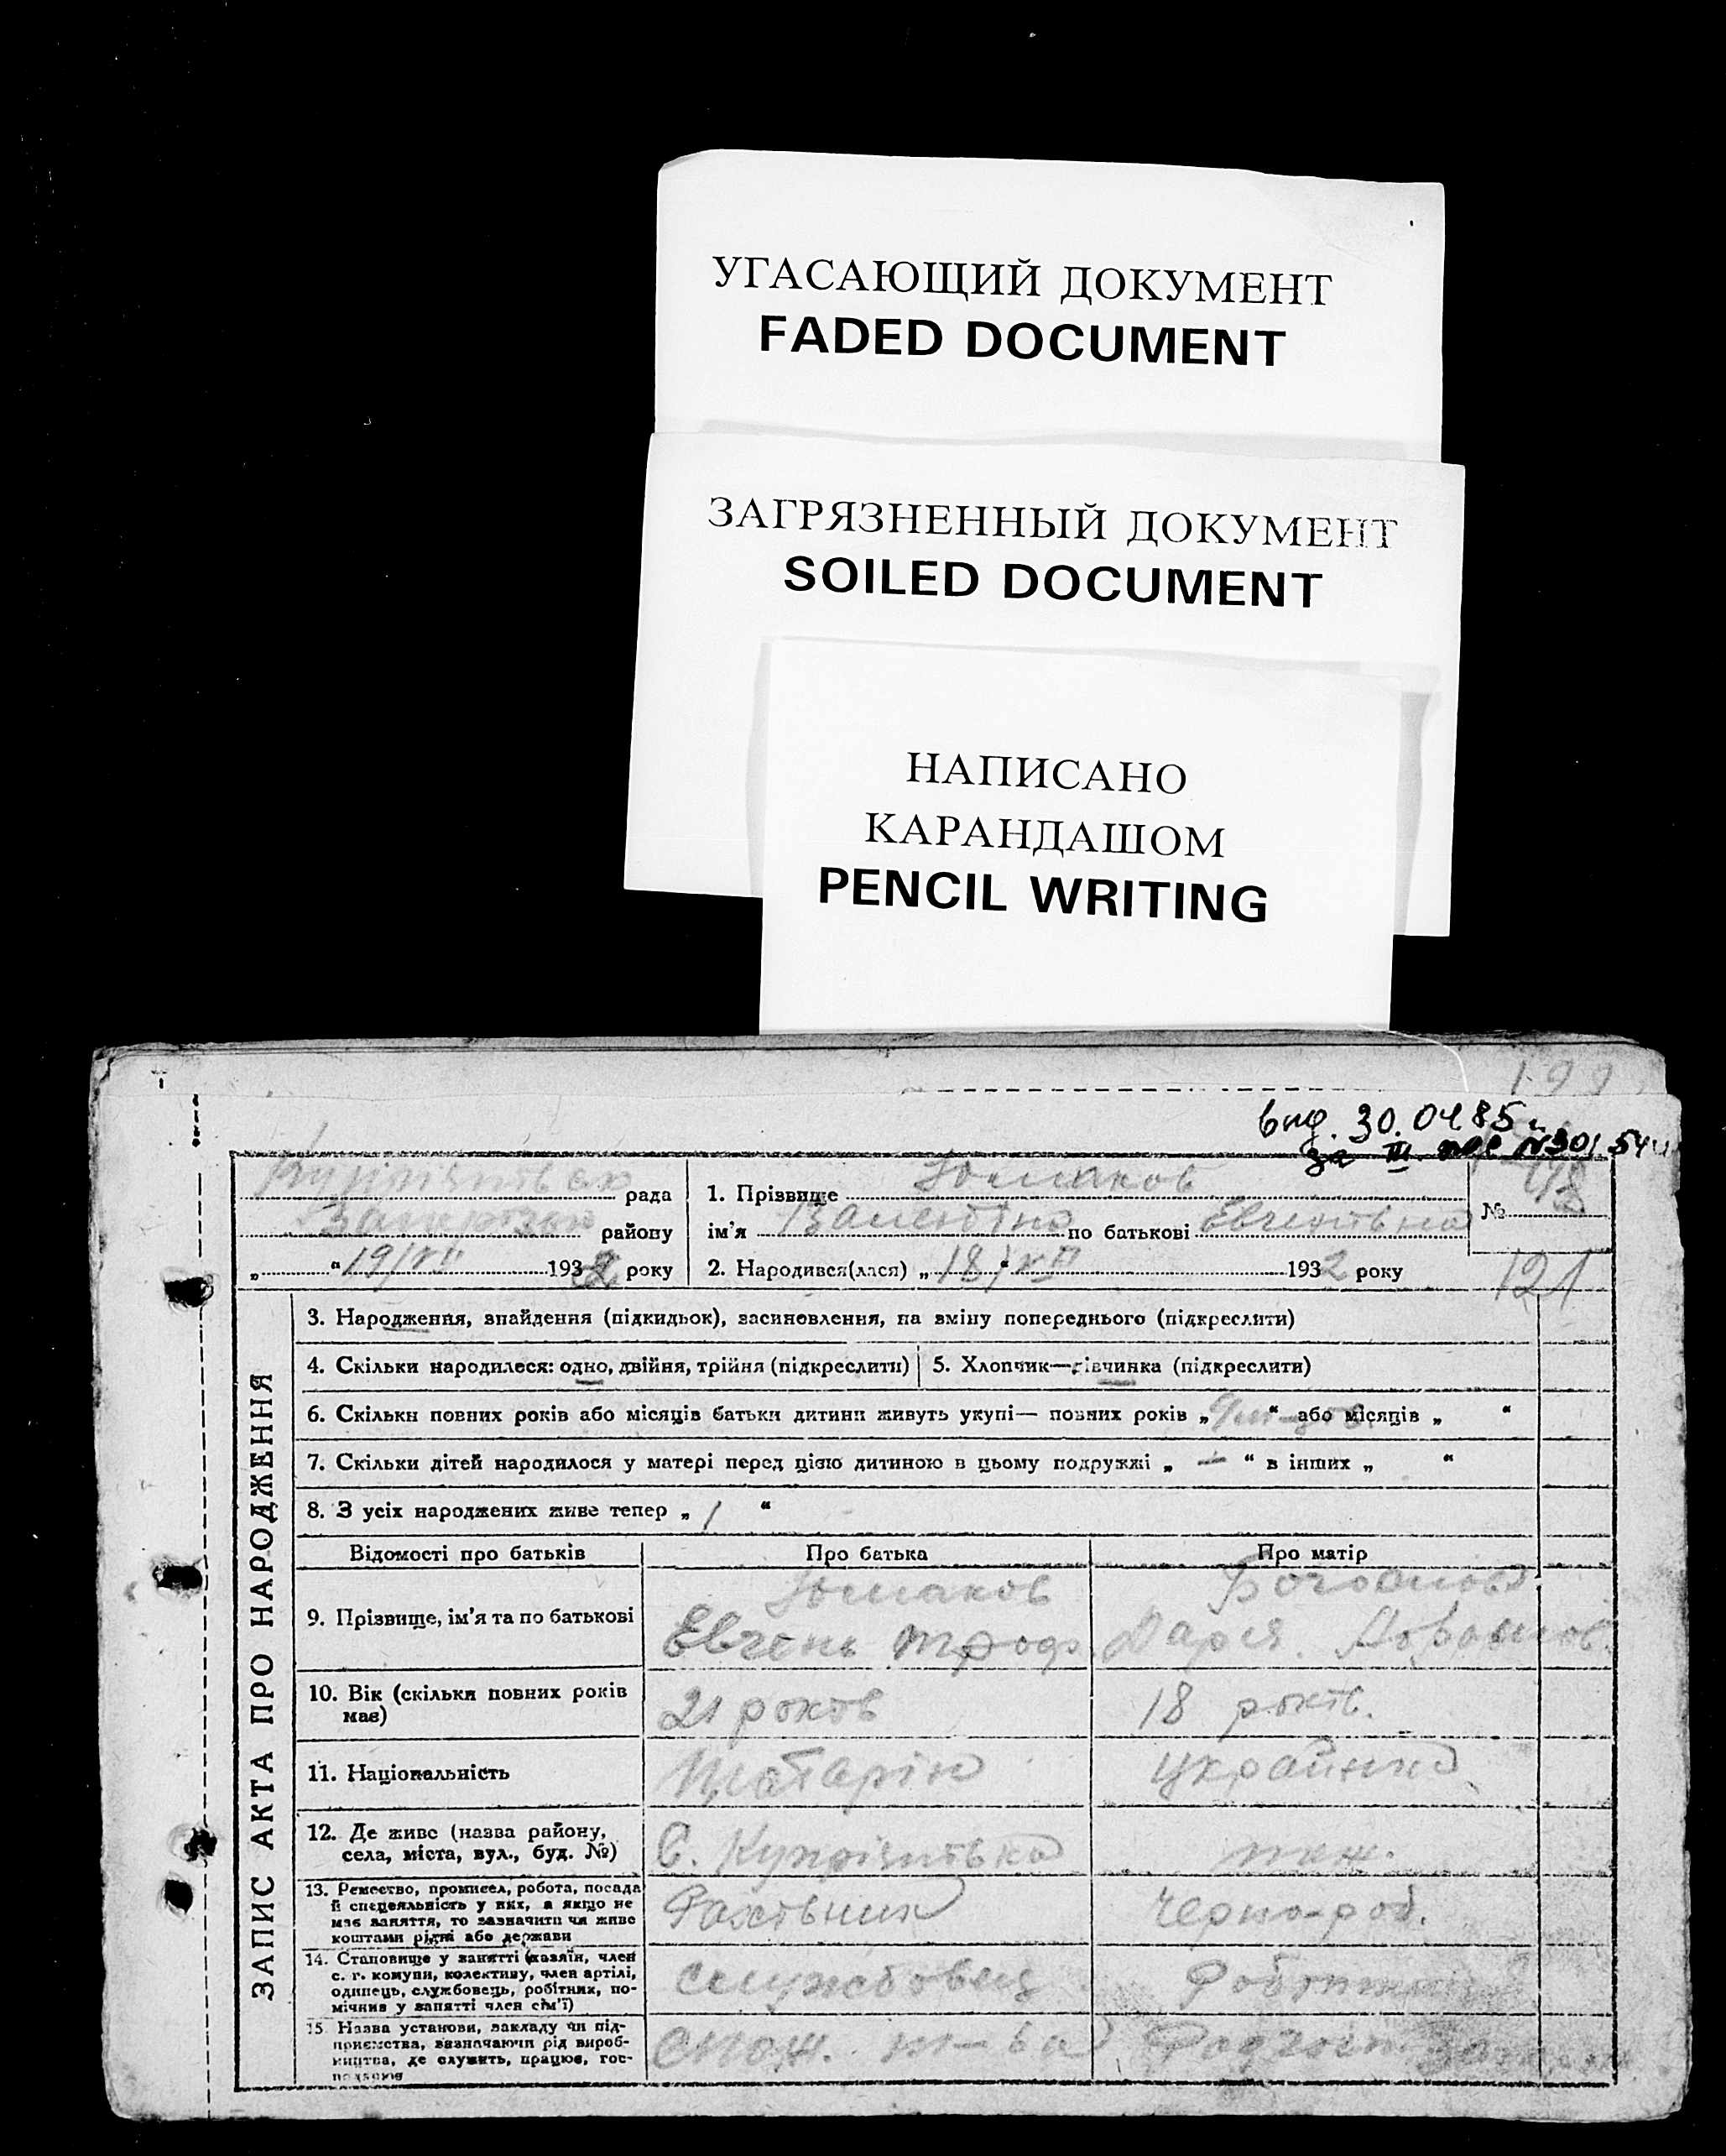 УГАСАЮЩИЙ ДОКУМЕНТ
FADED DOCUMENT
ЗАГРЯЗНЕННЫЙ ДОКУМЕНТ
SOILED DOCUMENT
НАПИСАНО
КАРАНДАШОМ
PENCIL WRITING
199
вид. 30.04 85
за III №301 54
рада
району
„ “ 19/VII 1932 року
1. Прізвище Юлшаков
ім'я Валентіна по батькові Евгенівна
2. Народився(лася) „ 18/VII “ 1932 року
№ 48
121
ЗАПИС АКТА ПРО НАРОДЖЕННЯ
3. Народження, знайдення (підкидьок), засиновлення, на зміну попереднього (підкреслити)
4. Скільки народилося: одно, двійня, трійня (підкреслити)
5. Хлопчик—дівчинка (підкреслити)
6. Скільки повних років або місяців батьки дитини живуть укупі— повних років „ “ або місяців „ “
7. Скільки дітей народилося у матері перед цією дитиною в цьому подружжі „ — “ в інших „ “
8. З усіх народжених живе тепер „ 1 “
Відомості про батьків Про батька Про матір
9. Прізвище, ім'я та по батькові
Евгень Троф. Дарія
10. Вік (скільки повних років має)
21 років 18 років.
11. Національність
Татарін Українка
12. Де живе (назва району, села, міста, вул., буд. №)
С. Купріянівка теж.
13. Ремество, промисел, робота, посада й спеціяльність у них, а якщо не має заняття, то зазначити чи живе коштами рідні або держави
Рахівник Черно-роб.
14. Становище у занятті (хазяїн, член с. г. комуни, колективу, член артілі, одинець, службовець, робітник, помічник у занятті член сім'ї)
службовець
15. Назва установи, закладу чи підприємства, зазначаючи рід виробництва, де служить, працює, господарює
спож. т-ва